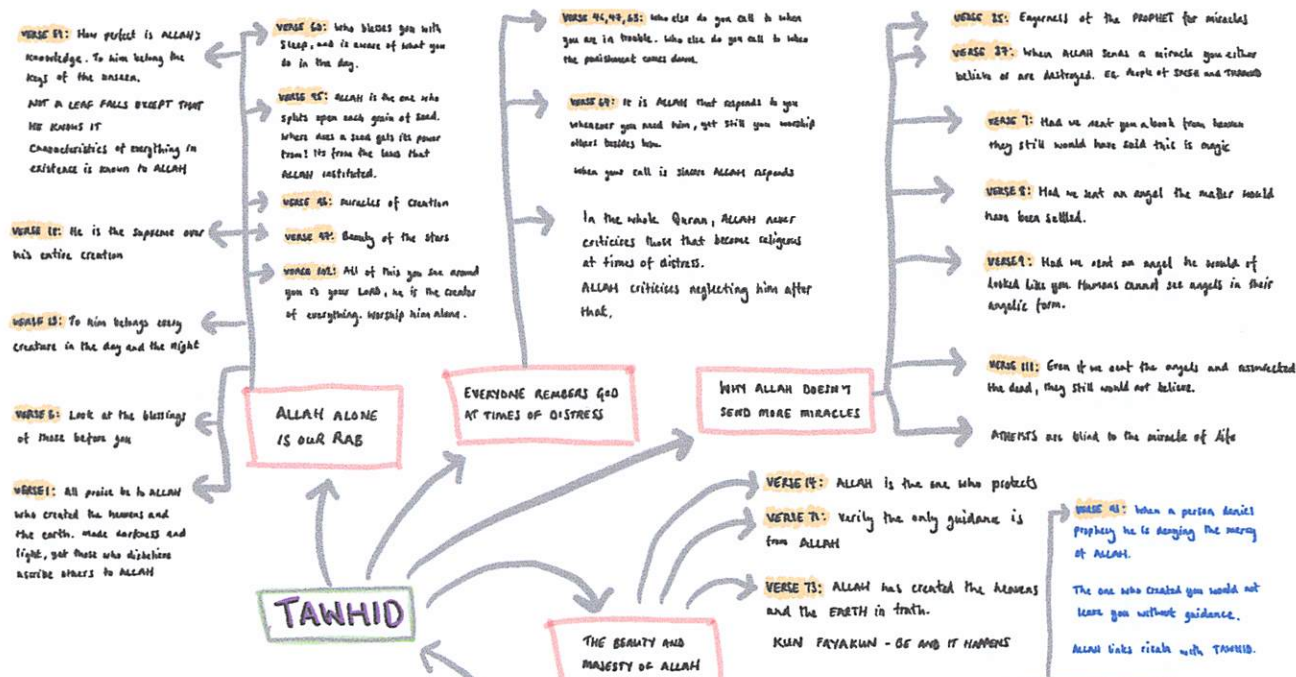 VERSE 59: How perfect is ALLAH's
knowledge. To him belong the
keys of the unseen.
NOT A LEAF FALLS EXCEPT THAT
HE KNOWS IT
Characteristics of everything in
existence is known to ALLAH
VERSE 18: He is the supreme over
his entire creation
VERSE 13: To him belongs every
creature in the day and the night
VERSE 6: Look at the blessings
of those before you
VERSE 1: All praise be to ALLAH
who created the heavens and
the earth. made darkness and
light, yet those who disbelieve
ascribe others to ALLAH
VERSE 60: Who blesses you with
sleep, and is aware of what you
do in the day.
VERSE 95: ALLAH is the one who
splits open each grain of seed.
Where does a seed gets its power
from? Its from the laws that
ALLAH instituted.
VERSE 96: miracles of creation
VERSE 97: Beauty of the stars
VERSE 102: All of this you see around
you is your LORD, he is the creator
of everything. Worship him alone.
ALLAH ALONE
IS OUR RAB
VERSE 46,47,63: Who else do you call to when
you are in trouble. Who else do you call to when
the punishment comes down.
VERSE 64: It is ALLAH that responds to you
whenever you need him, yet still you worship
others besides him.
When your call is sincere ALLAH responds
In the whole Quran, ALLAH never
criticises those that become religious
at times of distress.
ALLAH criticises neglecting him after
that.
EVERYONE REMBERS GOD
AT TIMES OF DISTRESS
WHY ALLAH DOESN'T
SEND MORE MIRACLES
VERSE 35: Eagerness of the PROPHET for miracles
VERSE 37: When ALLAH sends a miracle you either
believe or are destroyed. Eg. People of and THAMUD
VERSE 7: Had we sent you a book from heaven
they still would have said this is magic
VERSE 8: Had we sent an angel the matter would
have been settled.
VERSE 9: Had we sent an angel he would of
looked like you. Humans cannot see angels in their
angelic form.
VERSE 111: Even if we sent the angels and resurrected
the dead, they still would not believe.
ATHEISTS are blind to the miracle of life
TAWHID
THE BEAUTY AND
MAJESTY OF ALLAH
VERSE 14: ALLAH is the one who protects
VERSE 71: Verily the only guidance is
from ALLAH
VERSE 73: ALLAH has created the heavens
and the EARTH in truth.
KUN FAYAKUN - BE AND IT HAPPENS
VERSE 91: When a person denies
prophecy he is denying the mercy
of ALLAH.
The one who created you would not
leave you without guidance.
ALLAH links with TAWHID.